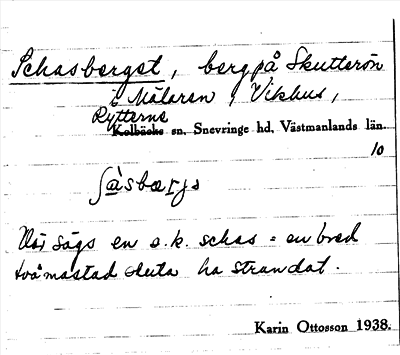 Schasberget, berg på Skutterön
i Mälaren, Vikhus,
Rytterne
Kolbäcks sn. Snevringe hd. Västmanlands län.
10
ʃàsbærjs
Där sägs en s.k. schas = en bred
tvåmastad skuta ha strandat.
Karin Ottosson 1938.